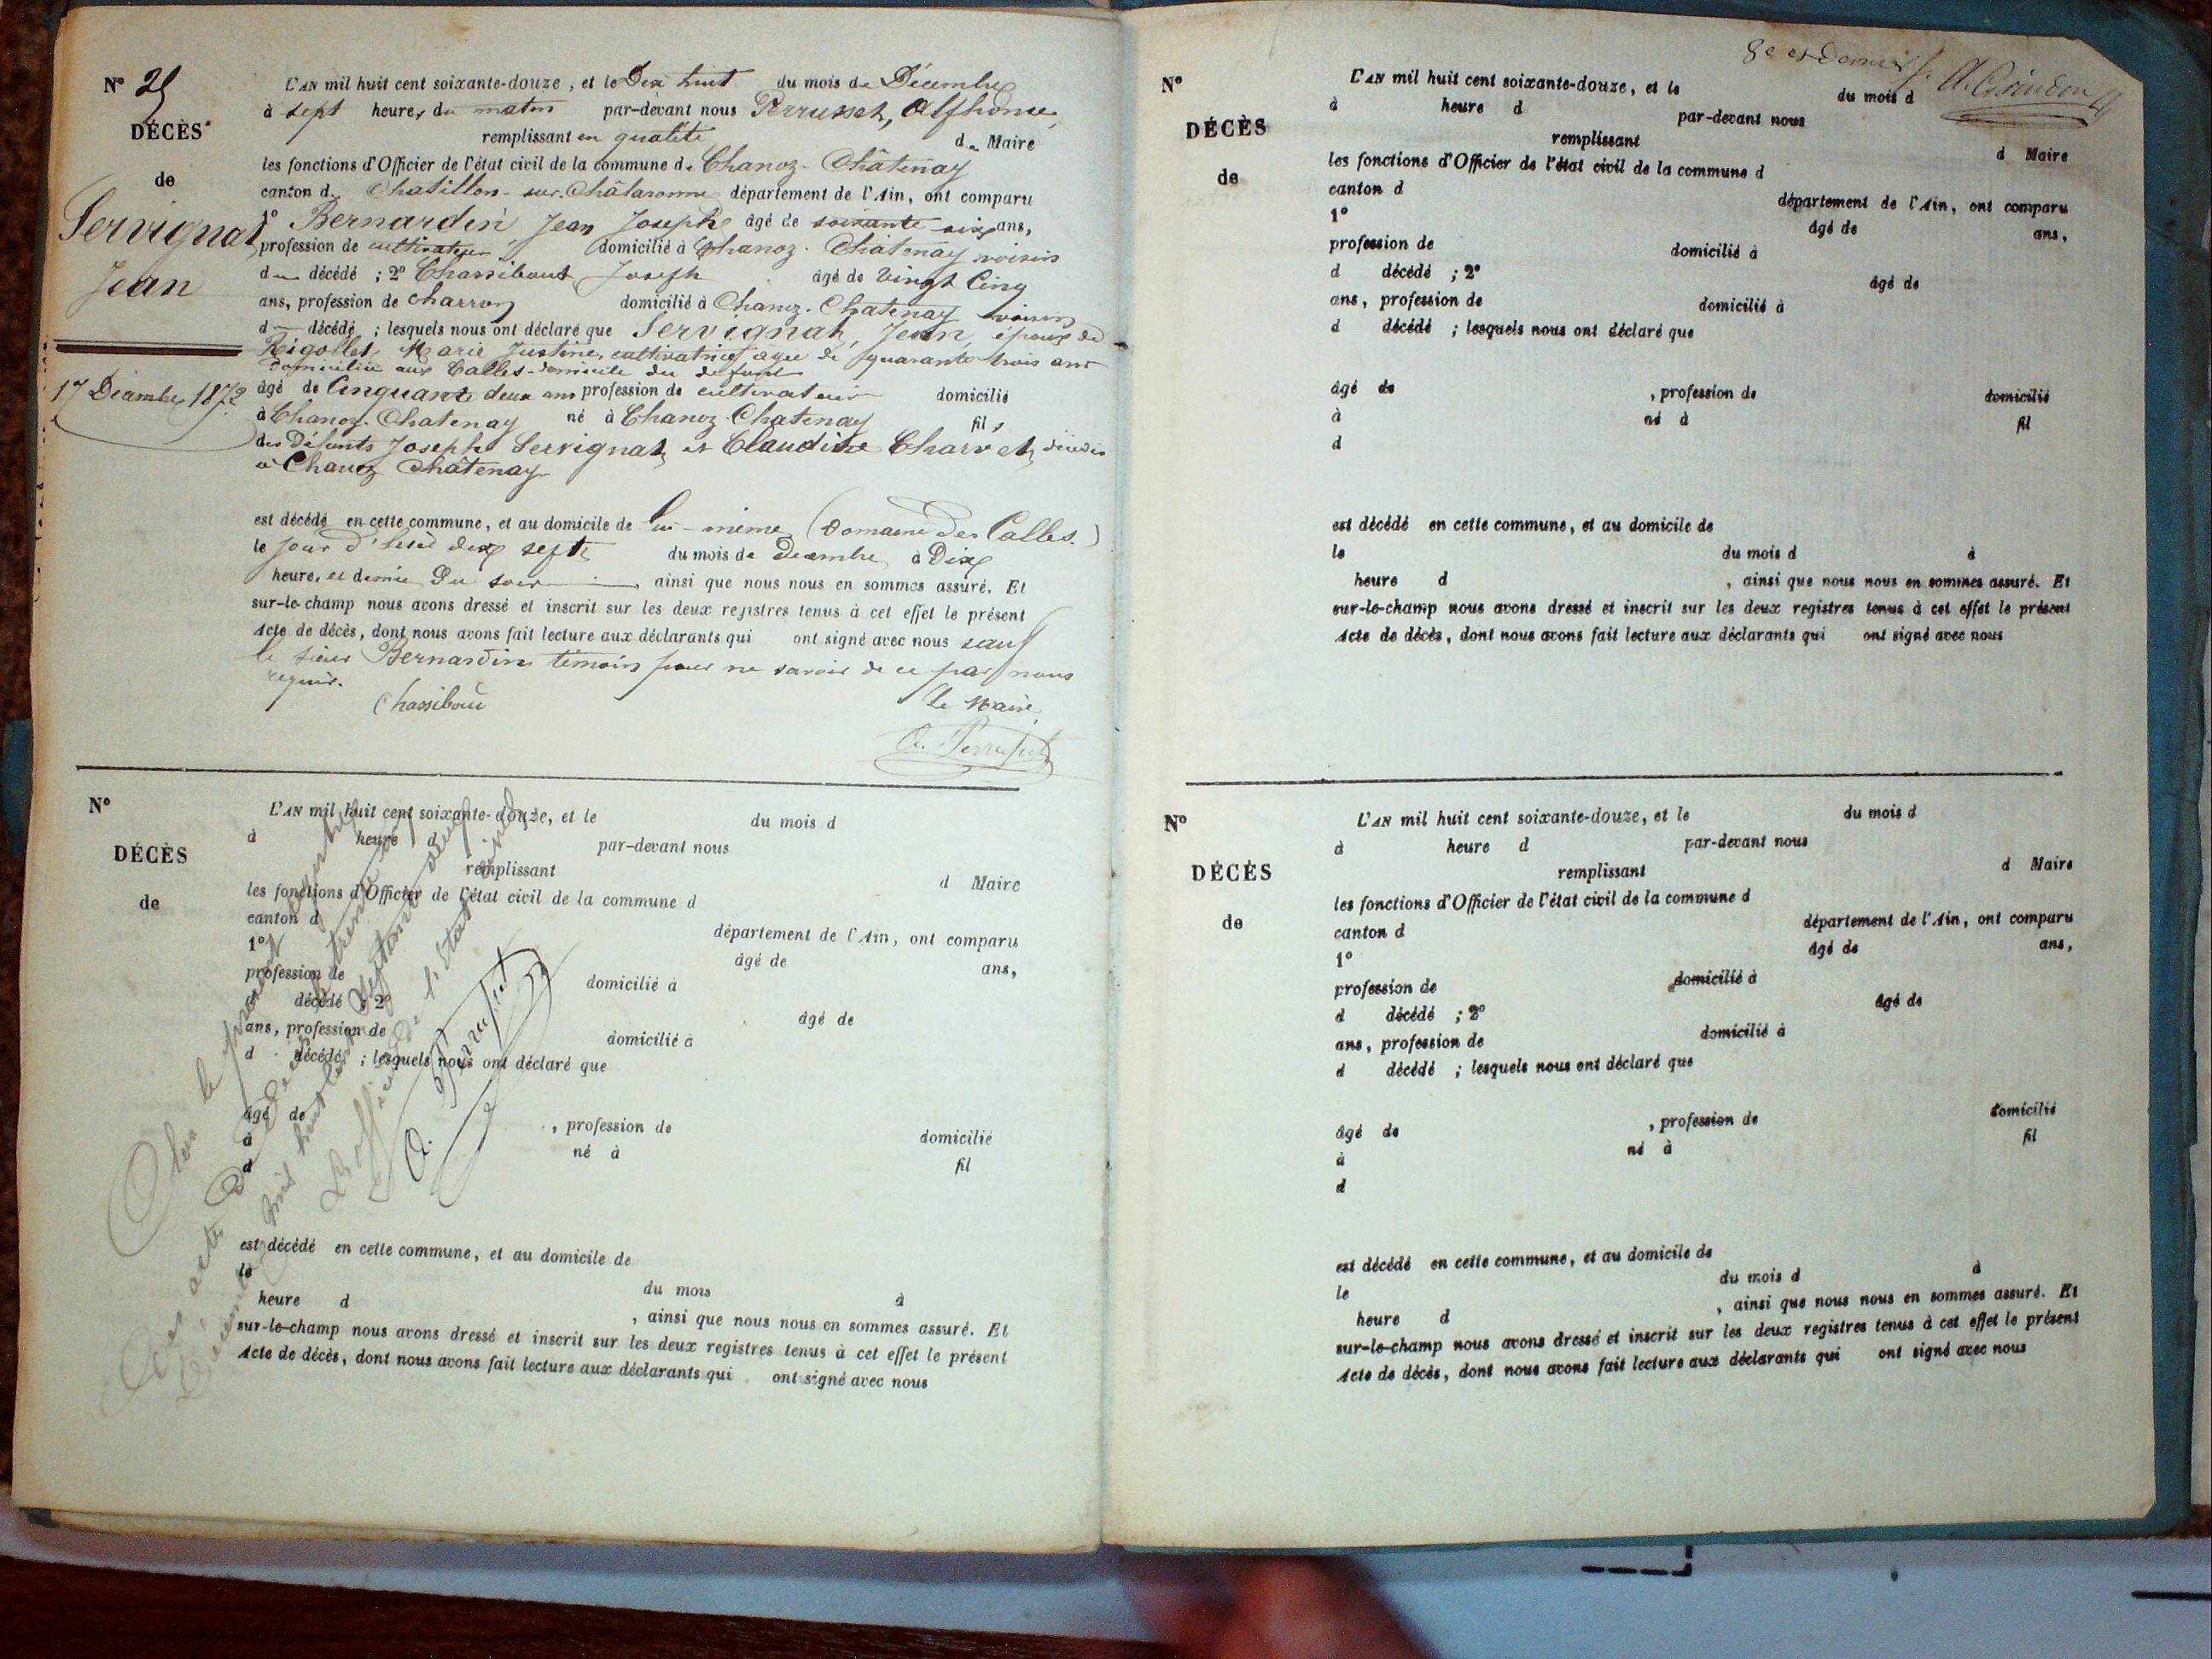 Nº 25
DÉCÈS
de
Servignat
Jean
17 Décembre 1872
L'AN mil huit cent soixante-douze, et le Dix huit du mois de Décembre
à sept heures du matin par-devant nous Perruset, Alphonse,
remplissant en qualité de Maire
les fonctions d'Officier de l'état civil de la commune de Chanoz-Châtenay
canton de Chatillon-sur-Chalaronne département de l'Ain, ont comparu
1º Bernardin Jean Joseph âgé de soixante six ans,
profession de cultivateur domicilié à Chanoz-Châtenay voisin
du décédé ; 2º Chassibout Joseph âgé de Vingt Cinq
ans, profession de charron domicilié à Chanoz-Chatenay voisin
du décédé ; lesquels nous ont déclaré que Servignat, Jean, époux de
Rigollet Marie Justine, cultivatrice agée de quarante trois ans
domiciliée aux Calles-domicile du defunt
âgé de Cinquante deux ans profession de cultivateur domicilié
à Chanoz-Chatenay né à Chanoz-Chatenay fils
des Défunts Joseph Servignat et Claudine Charvet décédés
à Chanoz Châtenay
est décédé en cette commune, et au domicile de lui-même (Domaine des Calles.)
le jour d'hier dix sept du mois de Decembre à Dix
heures et demie Du soir , ainsi que nous nous en sommes assuré. Et
sur-le-champ nous avons dressé et inscrit sur les deux registres tenus à cet effet le présent
Acte de décès, dont nous avons fait lecture aux déclarants qui ont signé avec nous sauf
le sieur Bernardin témoin pour ne savoir de ce par nous
requis.
Chassibout le Maire
A. Perruset
Nº
DÉCÈS
de
L'AN mil huit cent soixante-douze, et le du mois d
à heure d par-devant nous
remplissant d Maire
les fonctions d'Officier de l'état civil de la commune d
canton d département de l'Ain, ont comparu
1º âgé de ans,
profession de domicilié à
d décédé ; 2º âgé de
ans, profession de domicilié à
d décédé ; lesquels nous ont déclaré que
âgé de , profession de domicilié
à né à fil
d
est décédé en cette commune, et au domicile de
le du mois à
heure d , ainsi que nous nous en sommes assuré. Et
sur-le-champ nous avons dressé et inscrit sur les deux registres tenus à cet effet le présent
Acte de décès, dont nous avons fait lecture aux déclarants qui ont signé avec nous
Clos le présent registre
des actes de Décès le trente un
Décembre mil huit cent septante deux
L'officier de l'état civil
A. Perruset
8e et dernier f.
Nº
DÉCÈS
de
L'AN mil huit cent soixante-douze, et le du mois d
à heure d par-devant nous
remplissant d Maire
les fonctions d'Officier de l'état civil de la commune d
canton d département de l'Ain, ont comparu
1º âgé de ans,
profession de domicilié à
d décédé ; 2º âgé de
ans, profession de domicilié à
d décédé ; lesquels nous ont déclaré que
âgé de , profession de domicilié
à né à fil
d
est décédé en cette commune, et au domicile de
le du mois d à
heure d , ainsi que nous nous en sommes assuré. Et
sur-le-champ nous avons dressé et inscrit sur les deux registres tenus à cet effet le présent
Acte de décès, dont nous avons fait lecture aux déclarants qui ont signé avec nous
Nº
DÉCÈS
de
L'AN mil huit cent soixante-douze, et le du mois d
à heure d par-devant nous
remplissant d Maire
les fonctions d'Officier de l'état civil de la commune d
canton d département de l'Ain, ont comparu
1º âgé de ans,
profession de domicilié à
d décédé ; 2º âgé de
ans, profession de domicilié à
d décédé ; lesquels nous ont déclaré que
âgé de , profession de domicilié
à né à fil
d
est décédé en cette commune, et au domicile de
le du mois d à
heure d , ainsi que nous nous en sommes assuré. Et
sur-le-champ nous avons dressé et inscrit sur les deux registres tenus à cet effet le présent
Acte de décès, dont nous avons fait lecture aux déclarants qui ont signé avec nous